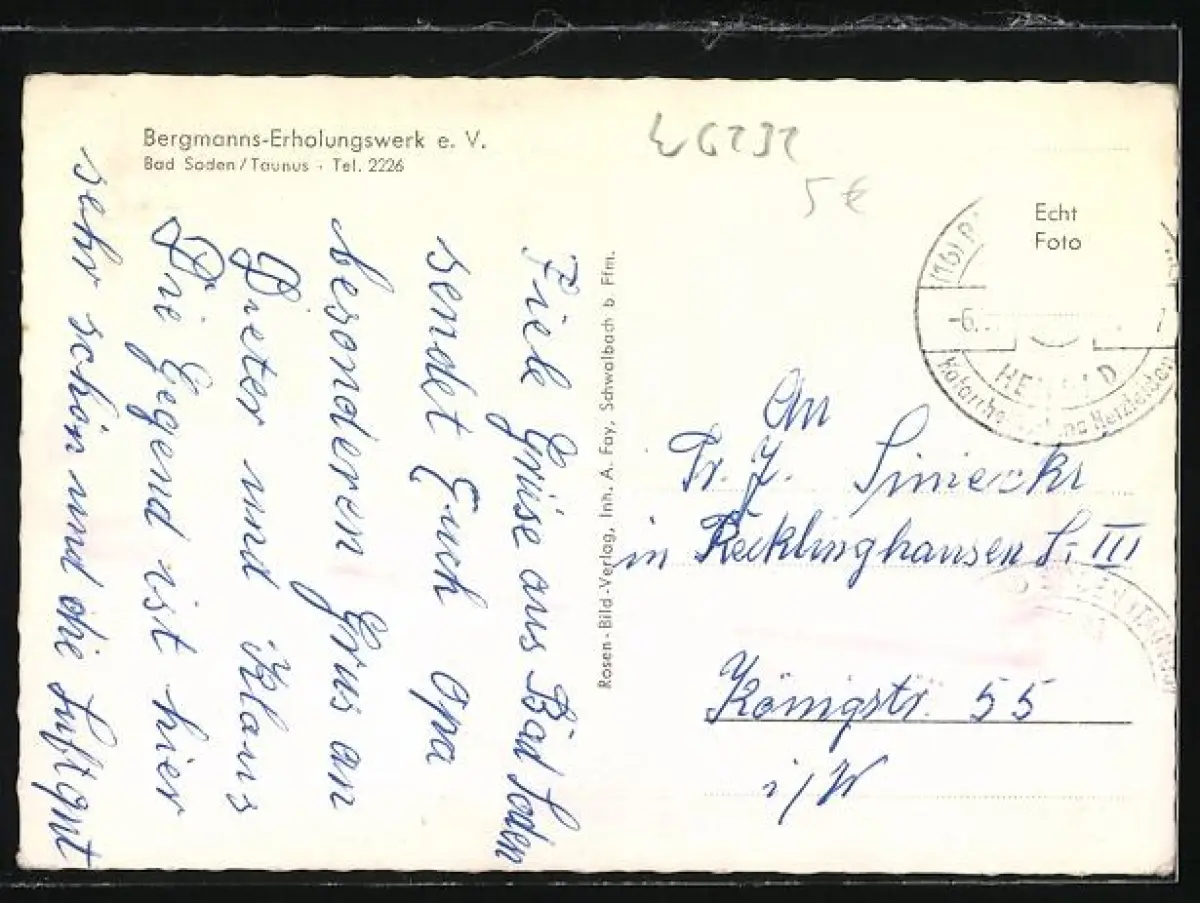 Bergmanns-Erholungswerk e. V.
Bad Soden/Taunus - Tel. 2226
Fiele Grüse aus Bad Soden
sendet Euch Opa
besonderen Grus an
Dieter und Klaus
Die Gegend ist hier
sehr schön und die Luft gut
Rosen-Bild-Verlag, Inh. A. Fay, Schwalbach b. Ffm.
5 €
Echt
Foto
(16)
-6.
An
in Recklinghausen S. III
Königstr. 55
i/W